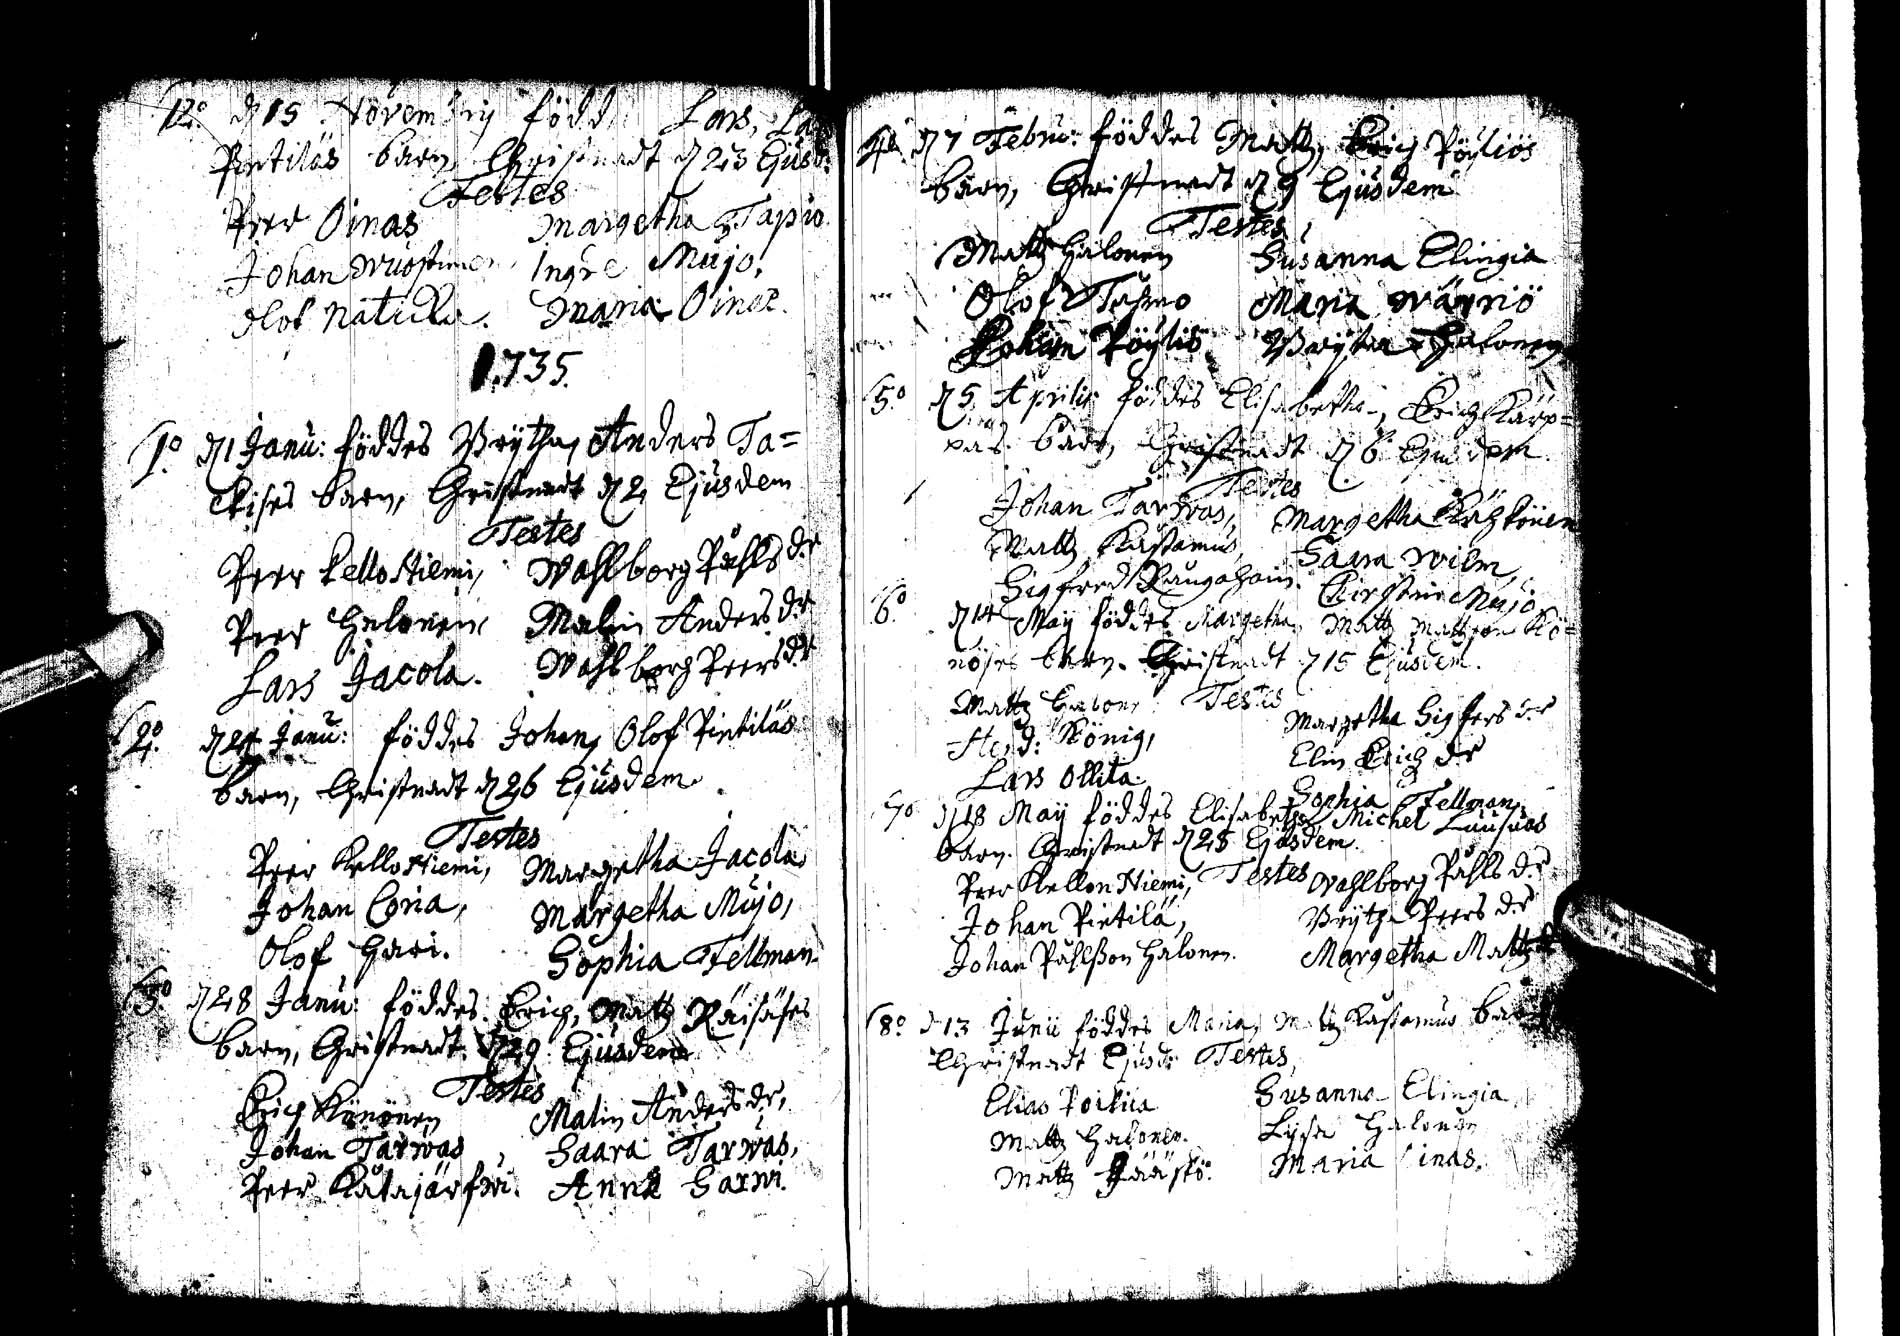 12.o d 15 Novembrij född Lars, La
Pietiläs barn, Christnadt d 23 Ejusd:
Testes
Peer Oinas Margetha Tapio
Johan Wuostimo Ingre Mujo,
Olof Maria Oinas.
1735.
1.o d 1 Janu: föddes Brytha, Anders Ta=
ckises barn, Christnadt d 2 Ejusdem
Testes
Peer Kello Niemi, Wahlborg Påhls dr
Peer Halonen, Malin Anders dr
Lars Jacola. Wahlborg Peers dr
2.o d 24 Janu: föddes Johan, Olof Pietiläs
barn, Christnadt d 26 Ejusdem.
Testes
Peer Kello Niemi, Margetha Jacola
Johan Coria, Margetha Mujo,
Olof Hari. Sophia Fellman
3.o d 28 Janu: föddes Erich, Matz Räisäses
barn, Christnadt d 29 Ejusdem
Testes
Erich Könönen Malin Anders dr,
Johan Tarwas, Saara Tarwas,
Peer Katajärfwi. Anna Sarwi.
4.o d 7 Febru: föddes Matz, Erich Pöyliös
barn, Christnadt d 9 Ejusdem
Testes
Matz Halonen Susanna Elingia
Olof Tapio Maria Wäyriö
Johan Pöyliö Brytha Halonen
5.o d 5 Aprilis föddes Elisabetha, Erich Kärp=
päs barn, Christnadt d 6 Ejusdem
Testes
Johan Tarwas, Margetha Kähkönen
Matz Kustamus, Saara Wilm,
Sigfred Raugahain. Kirstin Mujo
6.o d 14 May föddes Margetha, Matz Matzson Kö=
nöses barn. Christnadt d 15 Ejusdem.
Matz Halone Testes Margetha Sigfers dr
König, Elin Erich dr
Lars Ollila. Sophia Fellman
7.o d 18 May föddes Elisabetha, Michel Luusuas
barn. Christnadt d 28 Ejusdem.
Peer Kellon Niemi, Testes Wahlborg Påhls dr
Johan Pietilä, Brytha Peers dr
Johan Påhlsson Halonen. Margetha Matz
8.o d 13 Junii föddes Maria, Matz Kustamus bar
Christnadt Ejusd: Testes,
Elias Poikia Susanna Elingia
Matz Halonen. Lysa Halonen
Matz Jääskö. Maria Oinas.